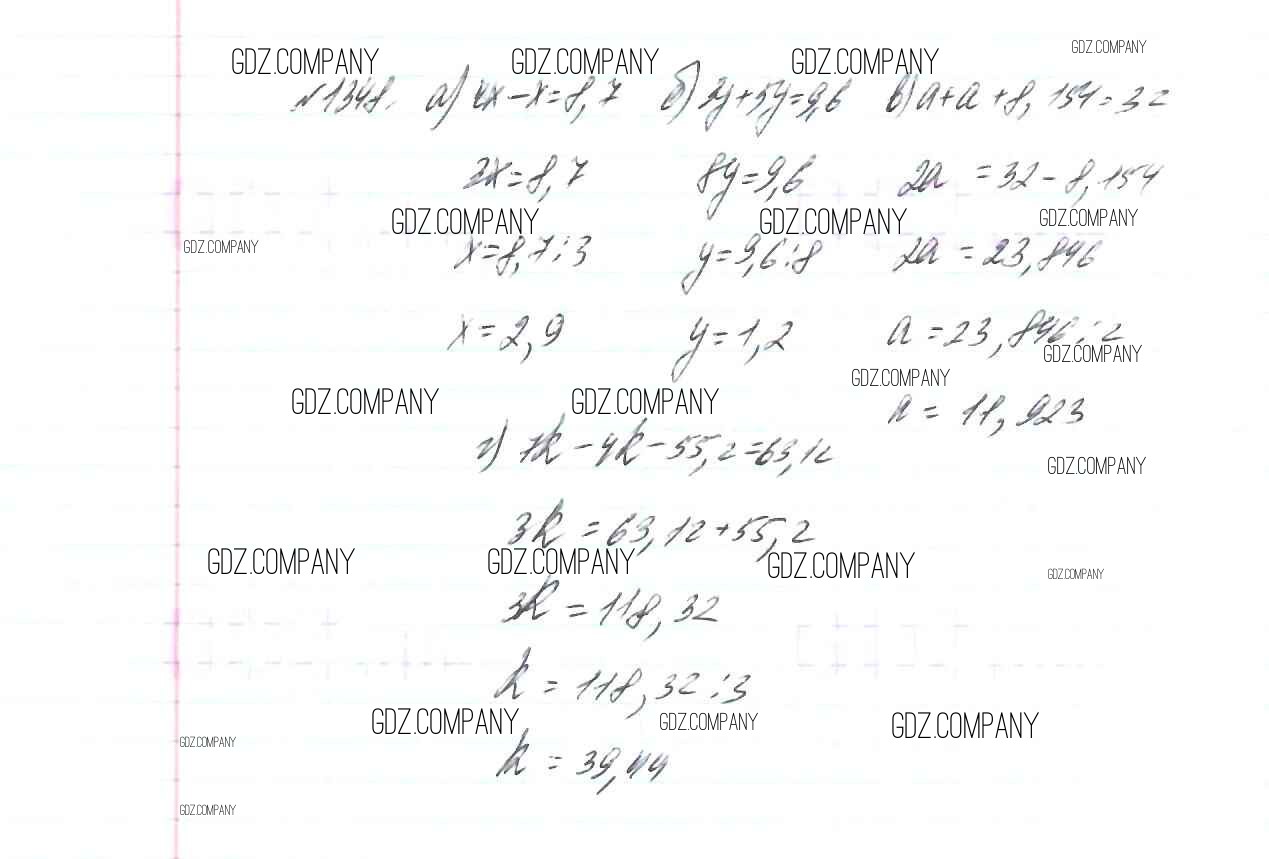 GDZ.COMPANY GDZ.COMPANY GDZ.COMPANY GDZ.COMPANY
№1348. а) 4x-x=8,7 б) 3y+5y=9,6 в) a+a+8,154=32
3x=8,7 8y=9,6 2a =32-8,154
GDZ.COMPANY GDZ.COMPANY GDZ.COMPANY
GDZ.COMPANY x=8,7:3 y=9,6:8 2a =23,846
x=2,9 y=1,2 a =23,846:2
GDZ.COMPANY
GDZ.COMPANY
GDZ.COMPANY GDZ.COMPANY a = 11,923
г) 7k-4k-55,2=63,12
GDZ.COMPANY
3k =63,12+55,2
GDZ.COMPANY GDZ.COMPANY GDZ.COMPANY GDZ.COMPANY
3k =118,32
k =118,32:3
GDZ.COMPANY GDZ.COMPANY GDZ.COMPANY
GDZ.COMPANY
k = 39,44
GDZ.COMPANY